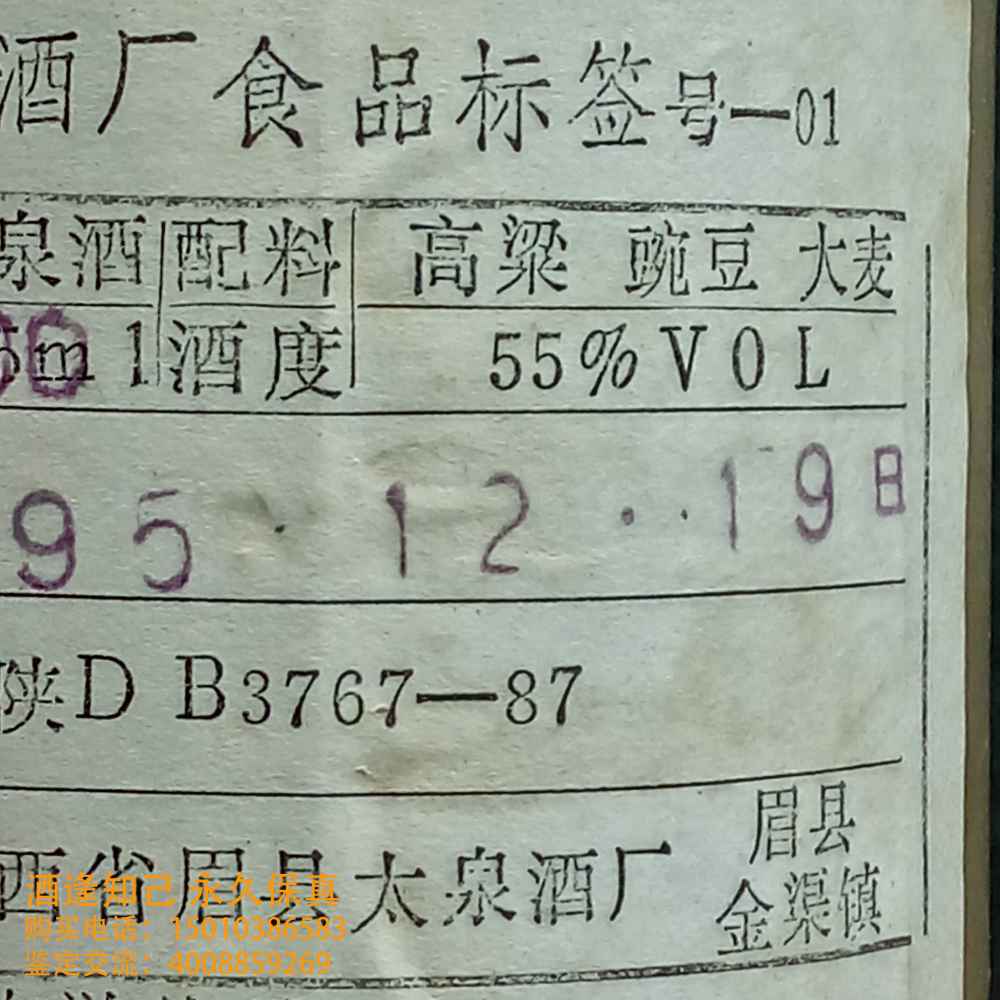 酒厂食品标签号—01
泉酒 配料 高粱 豌豆 大麦
ml 酒度 55%VOL
95·12··19日
陕DB3767—87
西省眉县太泉酒厂 眉县金渠镇
酒逢知己 永久保真
购买电话：15010386583
鉴定交流：4008859269